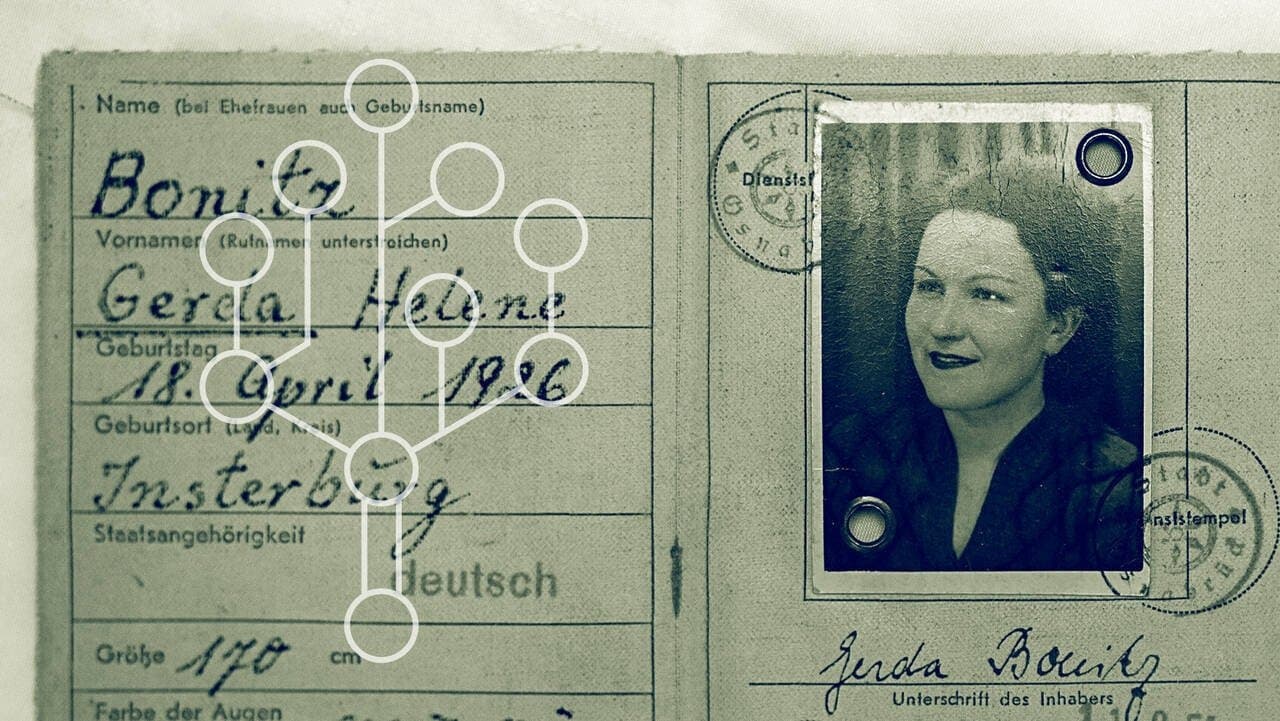 Name (bei Ehefrauen auch Geburtsname)
Bonitz
Vornamen (Rufnamen unterstreichen)
Gerda Helene
Geburtstag
18. April 1926
Geburtsort (Land, Kreis)
Insterburg
Staatsangehörigkeit
deutsch
Größe 170 cm
Farbe der Augen
Stadt
Osnabrück
Gerda Bonitz
Unterschrift des Inhabers